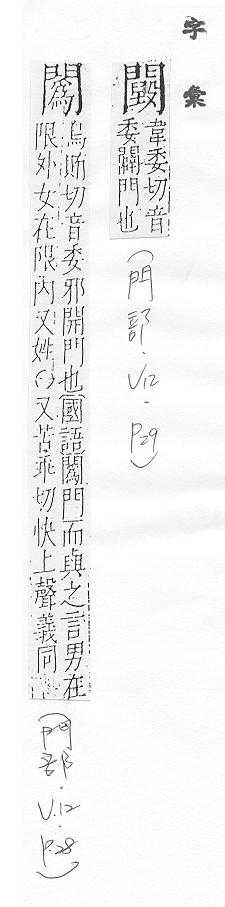 字彙
韋委切音
委闢門也
(門部.V12.P29)
䦱
烏賄切音委邪開門也國語䦱門而與之言男在
限外女在限内又姓○又苦乖切快上聲義同
(門部.V.12.P.28)